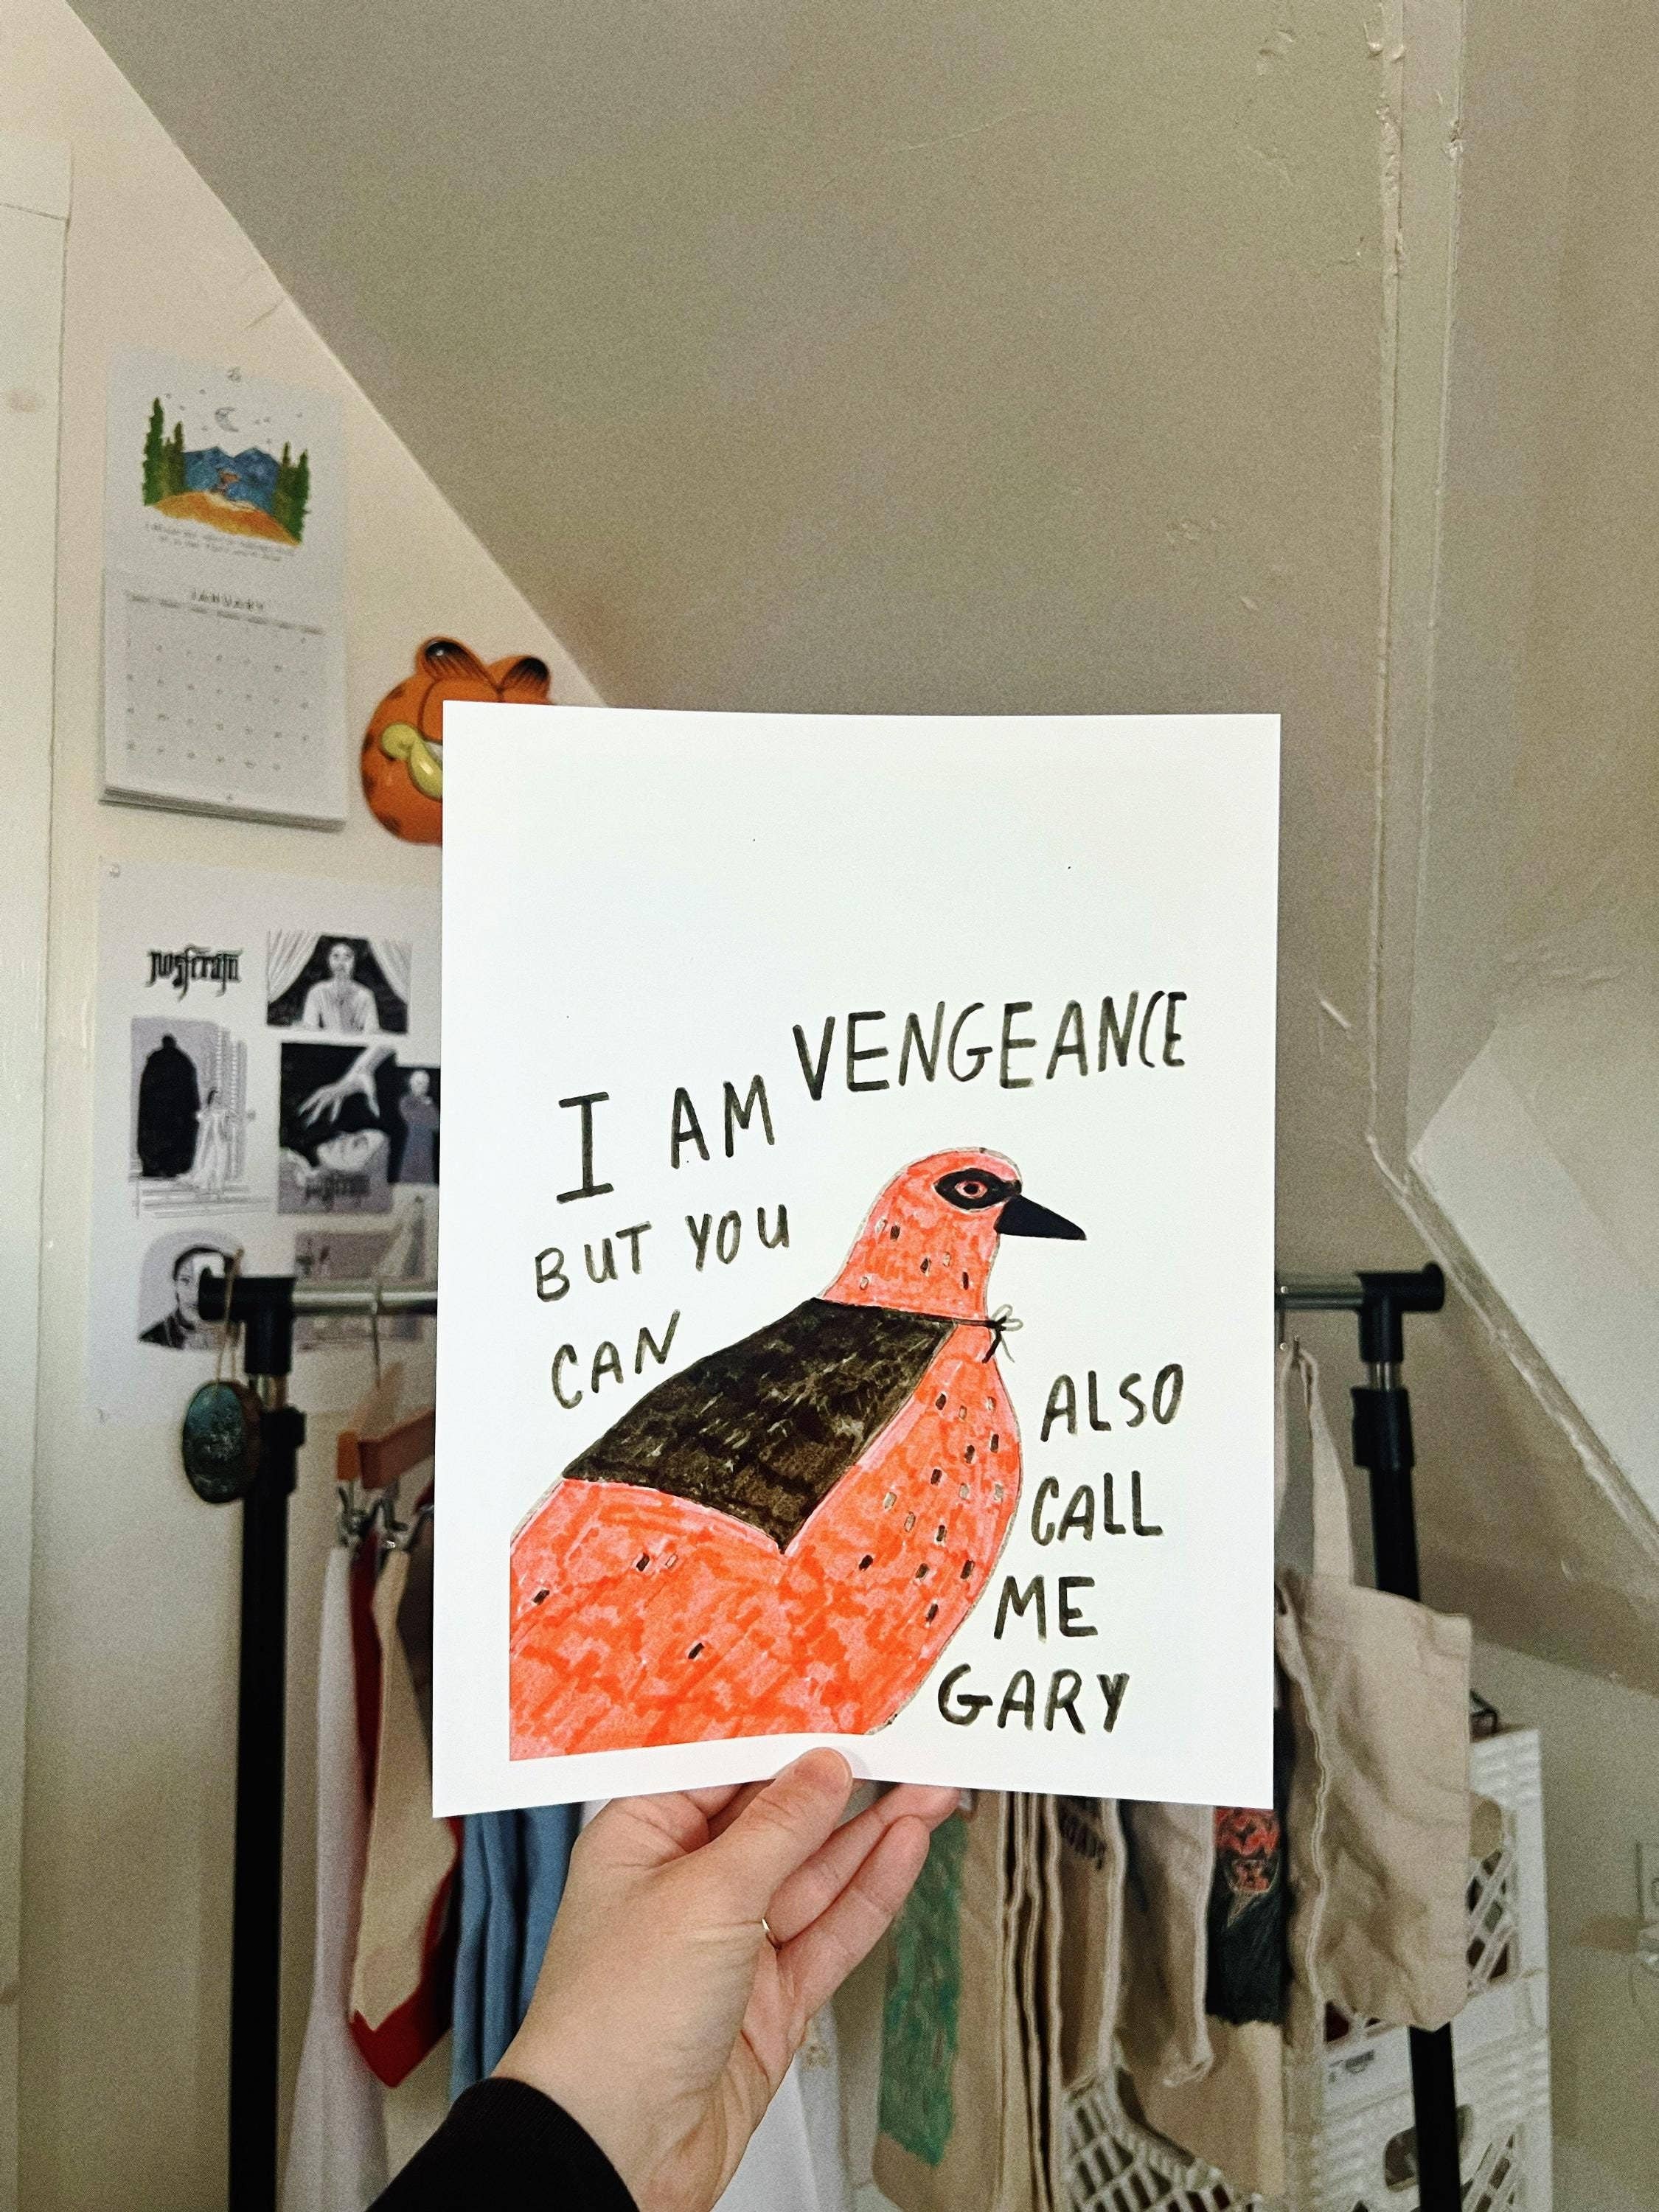 JANUARY
nosferatu
I AM VENGEANCE
BUT YOU
CAN
ALSO
CALL
ME
GARY